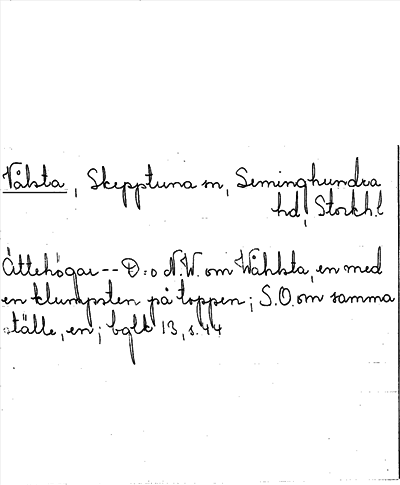 Vålsta, Skepptuna sn, Seminghundra
hd, Stockh.l
Ättehögar -- D:o N.W. om Wåhlsta, en med
en klumpsten på toppen; S.O. om samma
ställe, en; bglt 13, s. 44